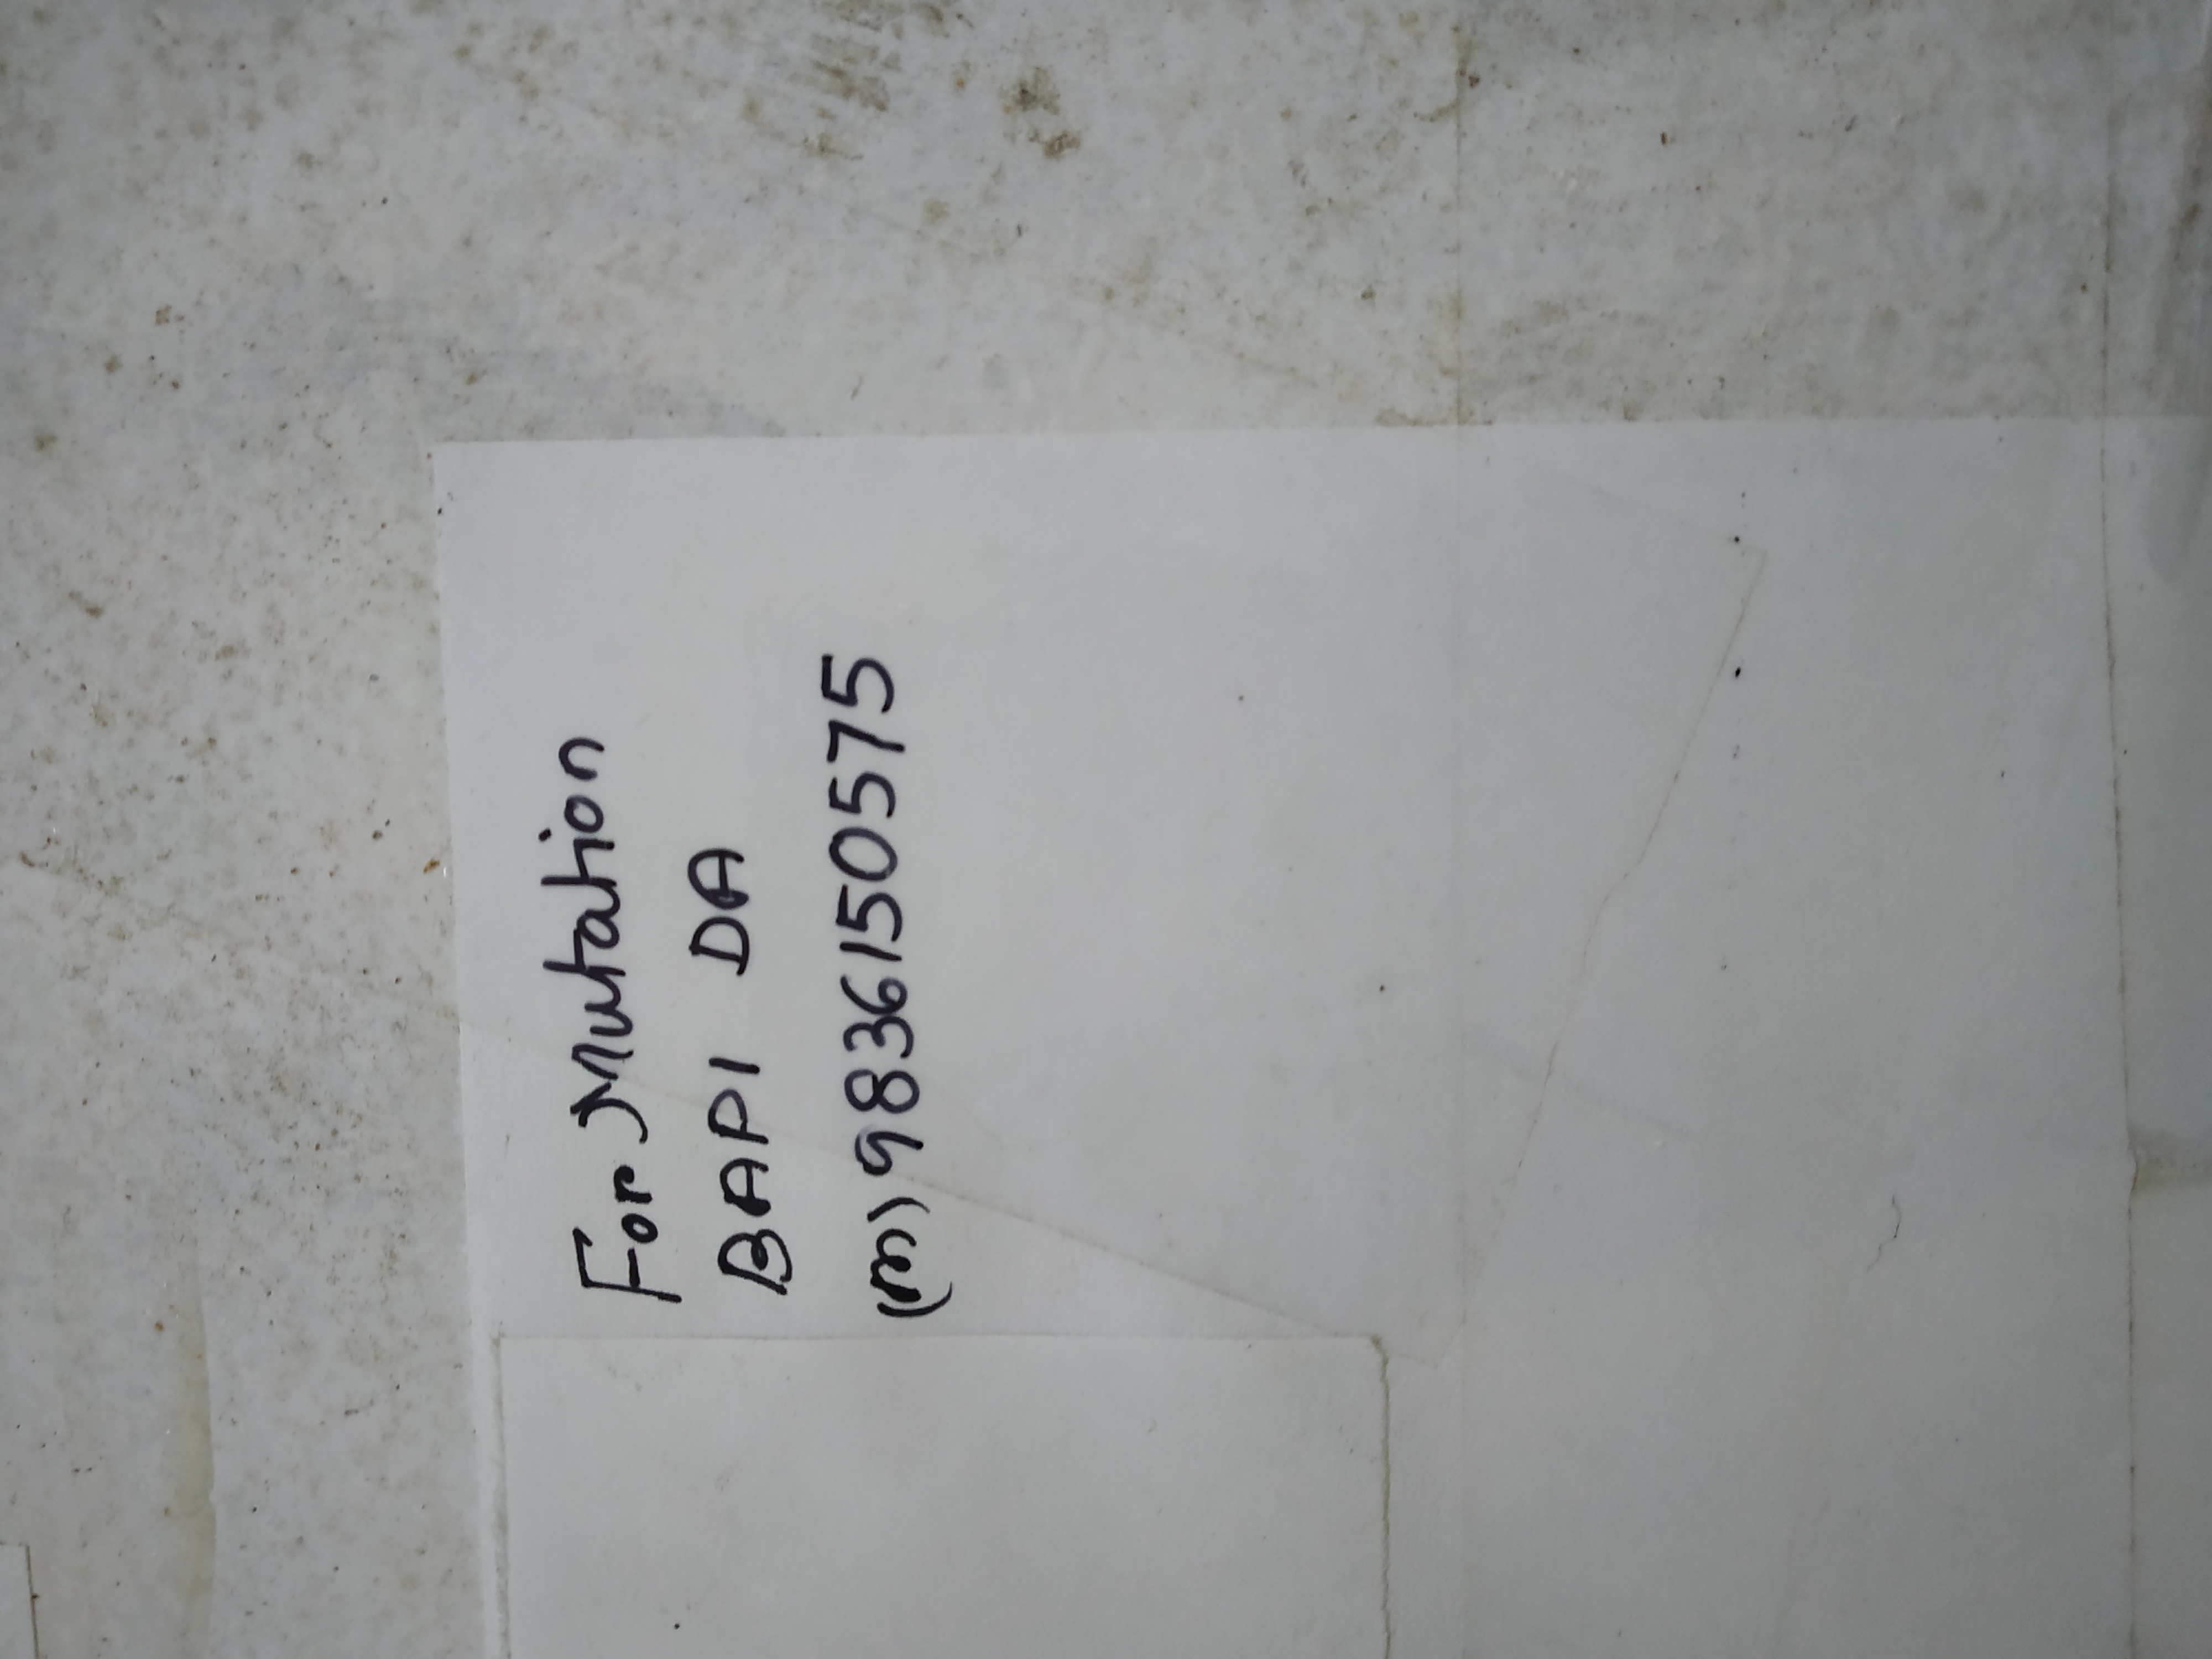 For Mutation
BAPI DA
(m) 9836150575